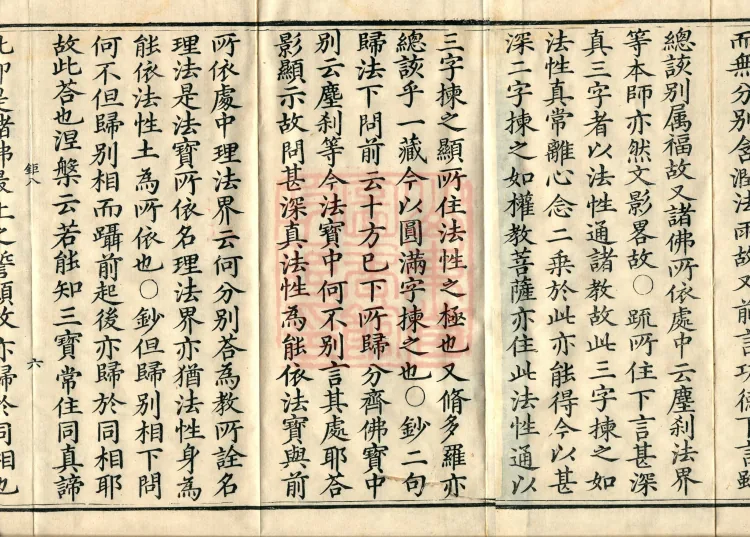 而無分別含潤法雨故又前言功德下言
總該別属福故又諸佛所依處中云塵刹法界
等本師亦然文影畧故〇䟽所住下言甚深
真三字者以法性通諸教故此三字揀之如
法性真常離心念二乘於此亦能得今以甚
深二字揀之如權教菩薩亦住此法性通以
三字揀之顯所住法性之極也又脩多羅亦
總該乎一藏今以圓滿字揀之也〇鈔二句
歸法下問前云十方已下所歸分齊佛寶中
別云塵刹等今法寶中何不別言其處耶荅
影顯示故問甚深真法性為能依法寶與前
所依處中理法界云何分別荅為教所詮名
理法是法寶所依名理法界亦猶法性身為
能依法性土為所依也〇鈔但歸別相下問
何不但歸別相而躡前起後亦歸於同相耶
故此荅也涅槃云若能知三寶常住同真諦
鉅八
六
此即是諸佛最上之誓願故亦歸於同相也